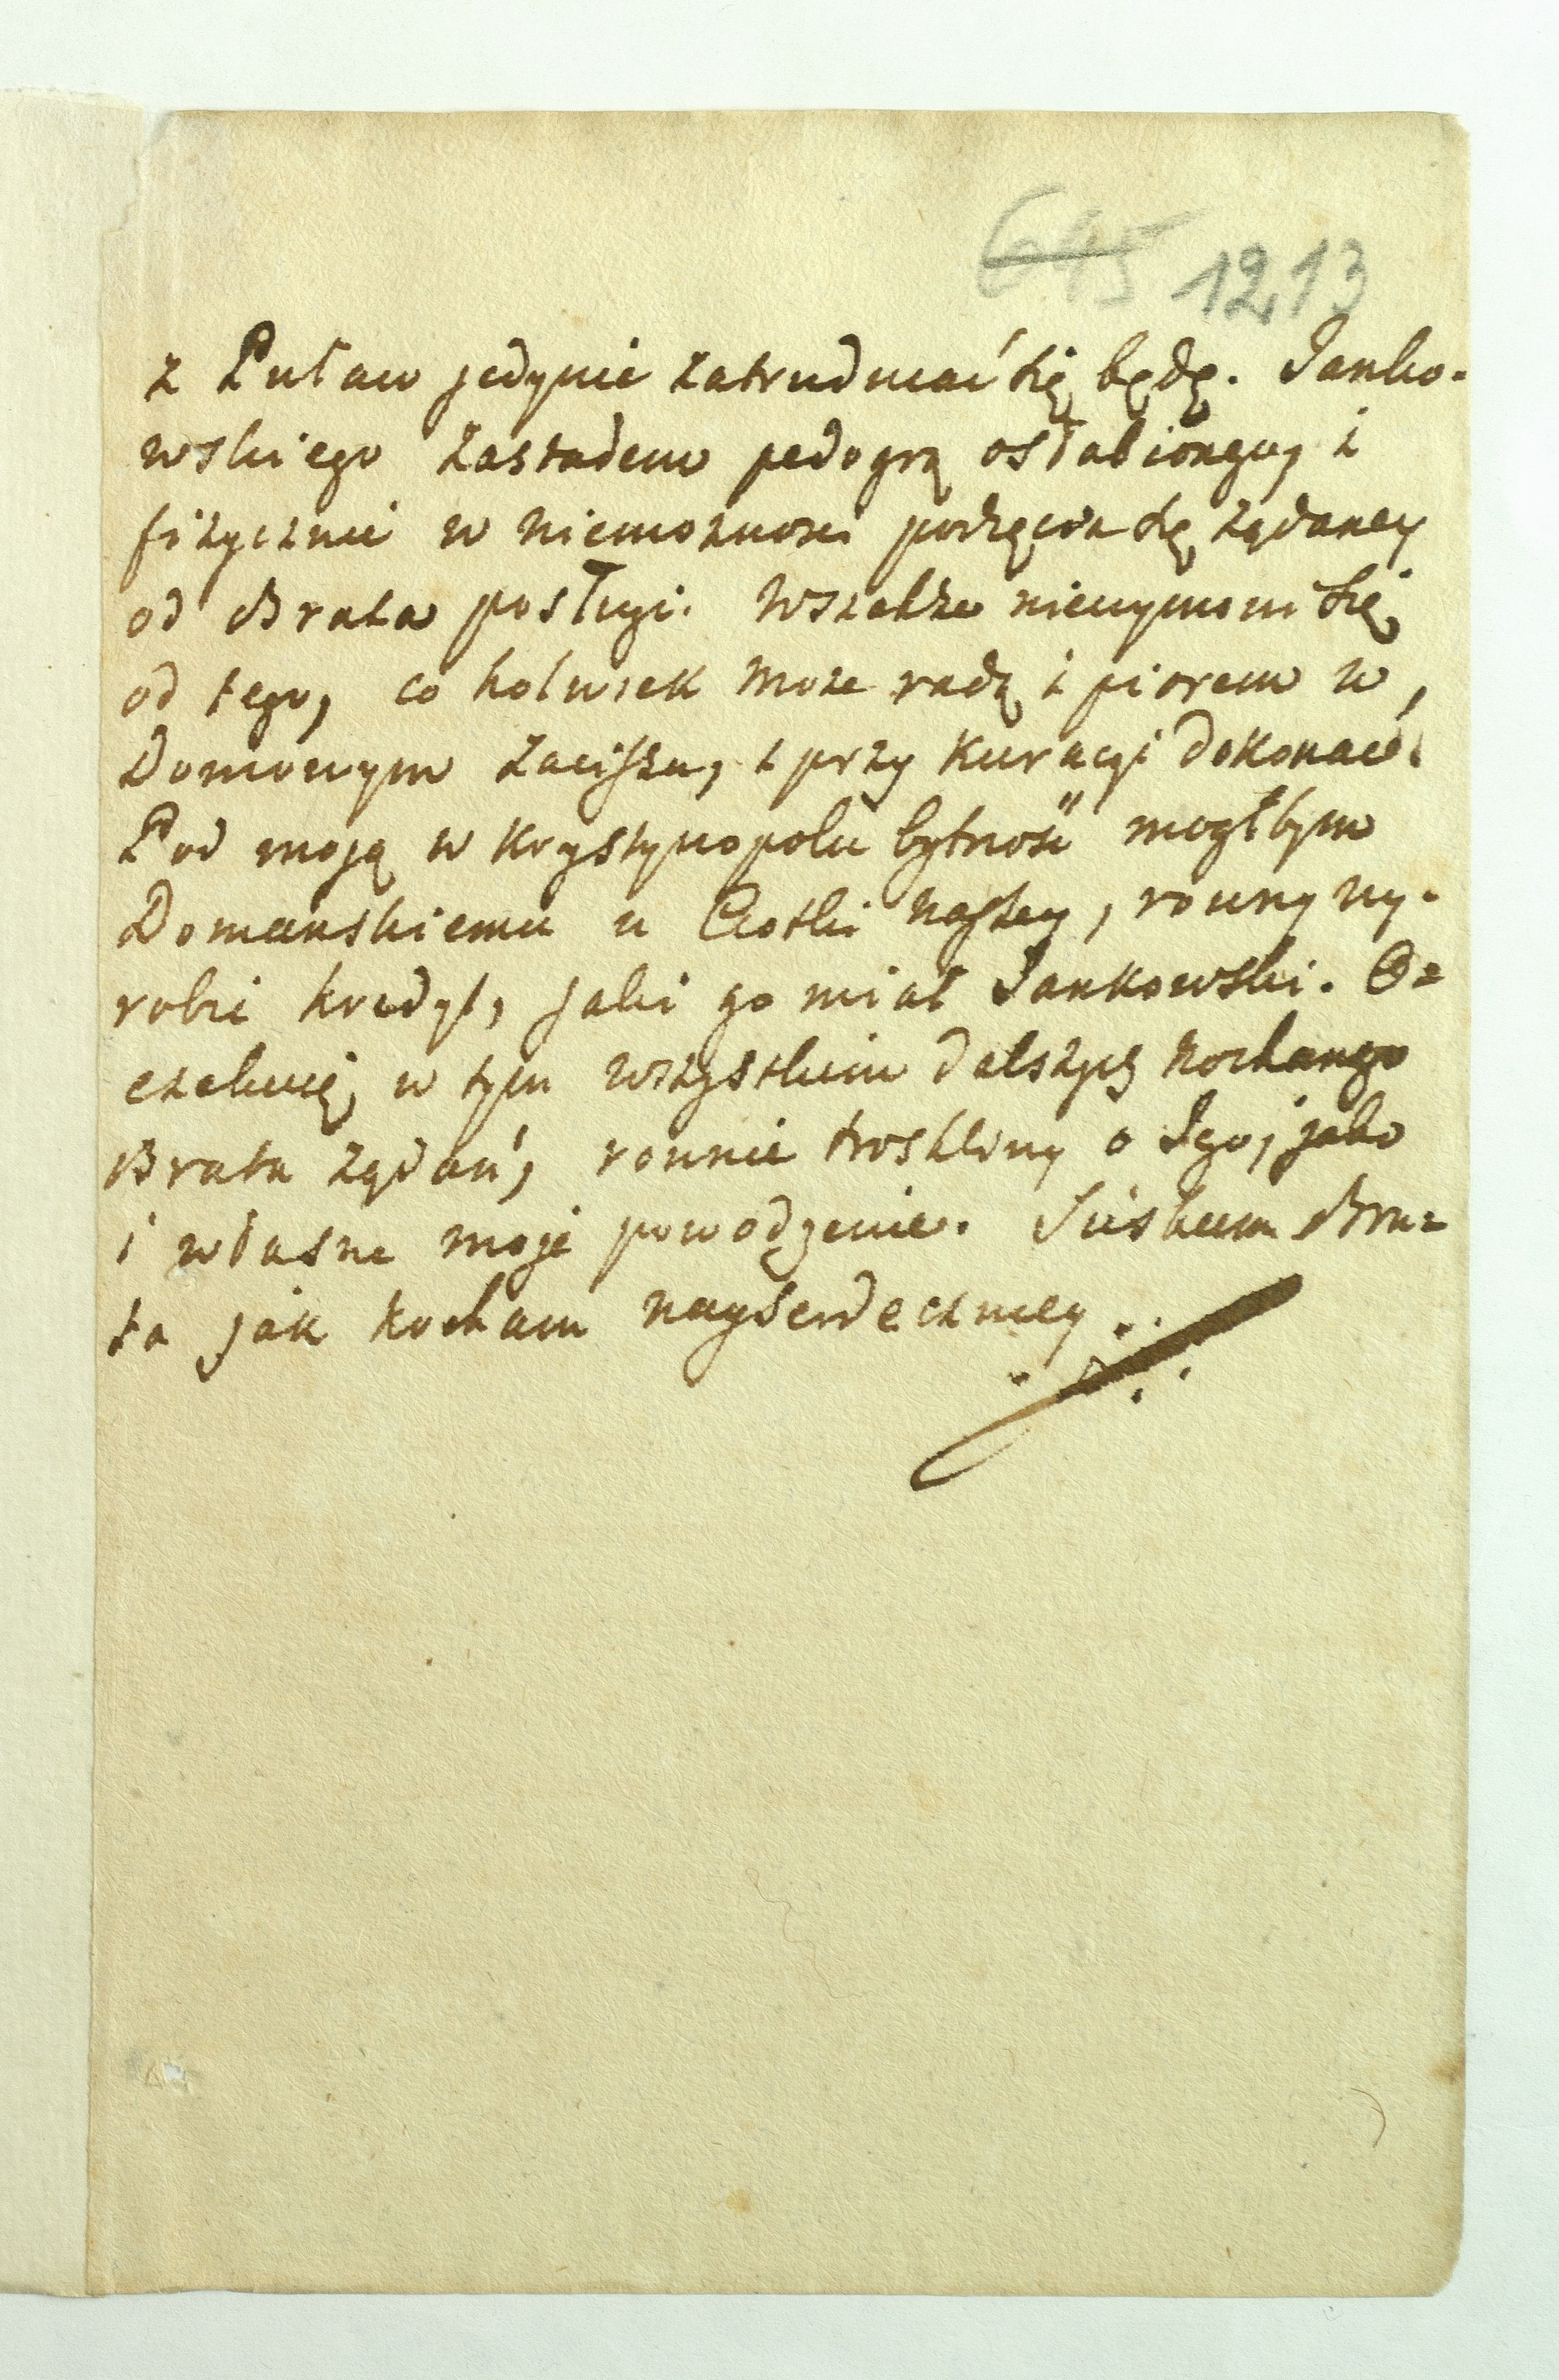 645 1213
z Puław jedynie zatrudniać się będę. Janko-
wskiego zastadem pedogrą osłabionego, i
fizycznie w niemożnosci podięcia się żądaney
od Brata posługi. Wszakże niewymowi się
od tego, co kolwiek może radą i piorem w,
Domowym zaciszu, i przy kuracyi dokonać.
Pod moją w Krystynopolu bytność mogłbym
Domanskiemu u Ciotki naszey, rowny wy-
robić kredyt, jaki go miał Jankowski. O=
czekuię w tym wszystkim dalszych kochanego
Brata żądań, rownie troskliwy o Jego, jako
i własne moje powodzenie. Sciskam Bra=
ta jak kocham nayserdeczniey